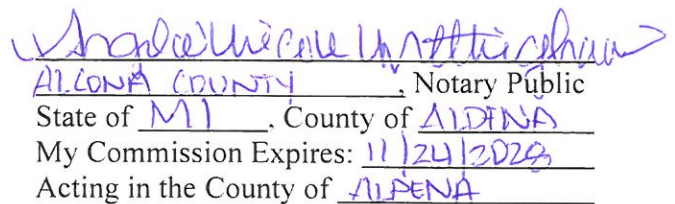 ALCONA COUNTY, Notary Public
State of MI, County of ALPENA
My Commission Expires: 11/24/2028
Acting in the County of ALPENA